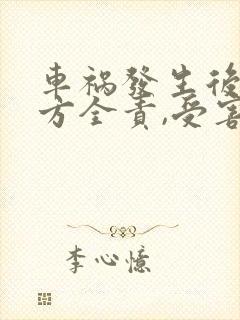 車祸發生後
方全責,受害
李心憶